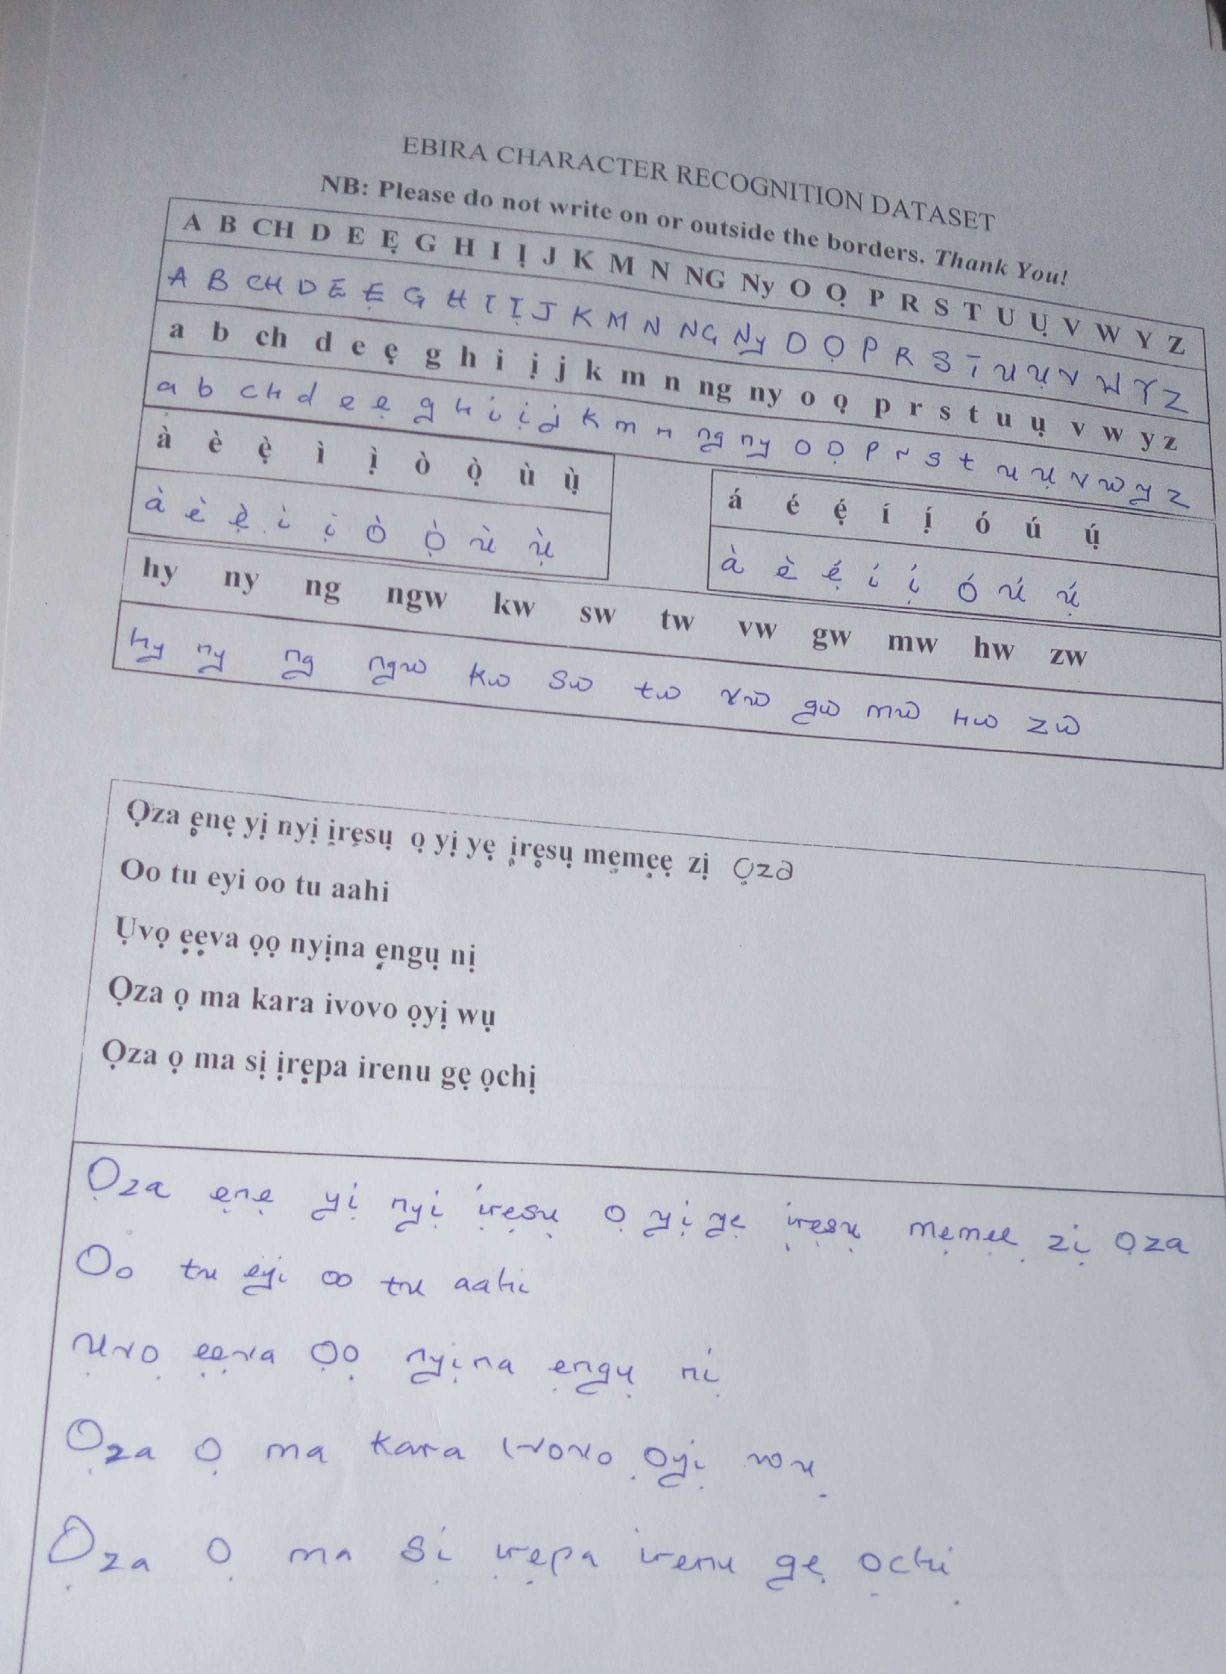 EBIRA CHARACTER RECOGNITION DATASET
NB: Please do not write on or outside the borders. Thank You!
A B CH D E Ẹ G H I Ị J K M N NG Ny O Ọ P R S T U Ụ V W Y Z
A B CH D E Ẹ G H I Ị J K M N NG Ny O Ọ P R S T U Ụ V W Y Z
a b ch d e ẹ g h i ị j k m n ng ny o ọ p r s t u ụ v w y z
a b cH d e ẹ g H i ị j k m n ng ny o ọ p r s t u ụ v w y z
à è ẹ̀ ì ị̀ ò ọ̀ ù ụ̀
à è ẹ̀ ì ị̀ ò ọ̀ ù ụ̀
á é ẹ́ í ị́ ó ú ụ́
à è ẹ́ í ị́ ó ú ụ́
hy ny ng ngw kw sw tw vw gw mw hw zw
hy ny ng ngw kw sw tw vw gw mw Hw zw
Ọza ẹnẹ yị nyị ịrẹsụ ọ yị yẹ ịrẹsụ mẹmẹẹ zị ọza
Oo tu eyi oo tu aahi
Ụvọ ẹẹva ọọ nyịna ẹngụ nị
Ọza ọ ma kara ivovo ọyị wụ
Ọza ọ ma sị ịrẹpa irenu gẹ ọchị
Ọza ẹnẹ yị nyị irẹsụ ọ yị yẹ ịrẹsụ mẹmẹẹ zị ọza
Oo tu eyi oo tu aahi
Ụvọ ẹẹva ọọ nyịna ẹngụ nị
Ọza ọ ma kara ivovo ọyị wụ
Ọza ọ ma sị ịrẹpa irenu gẹ ọchị